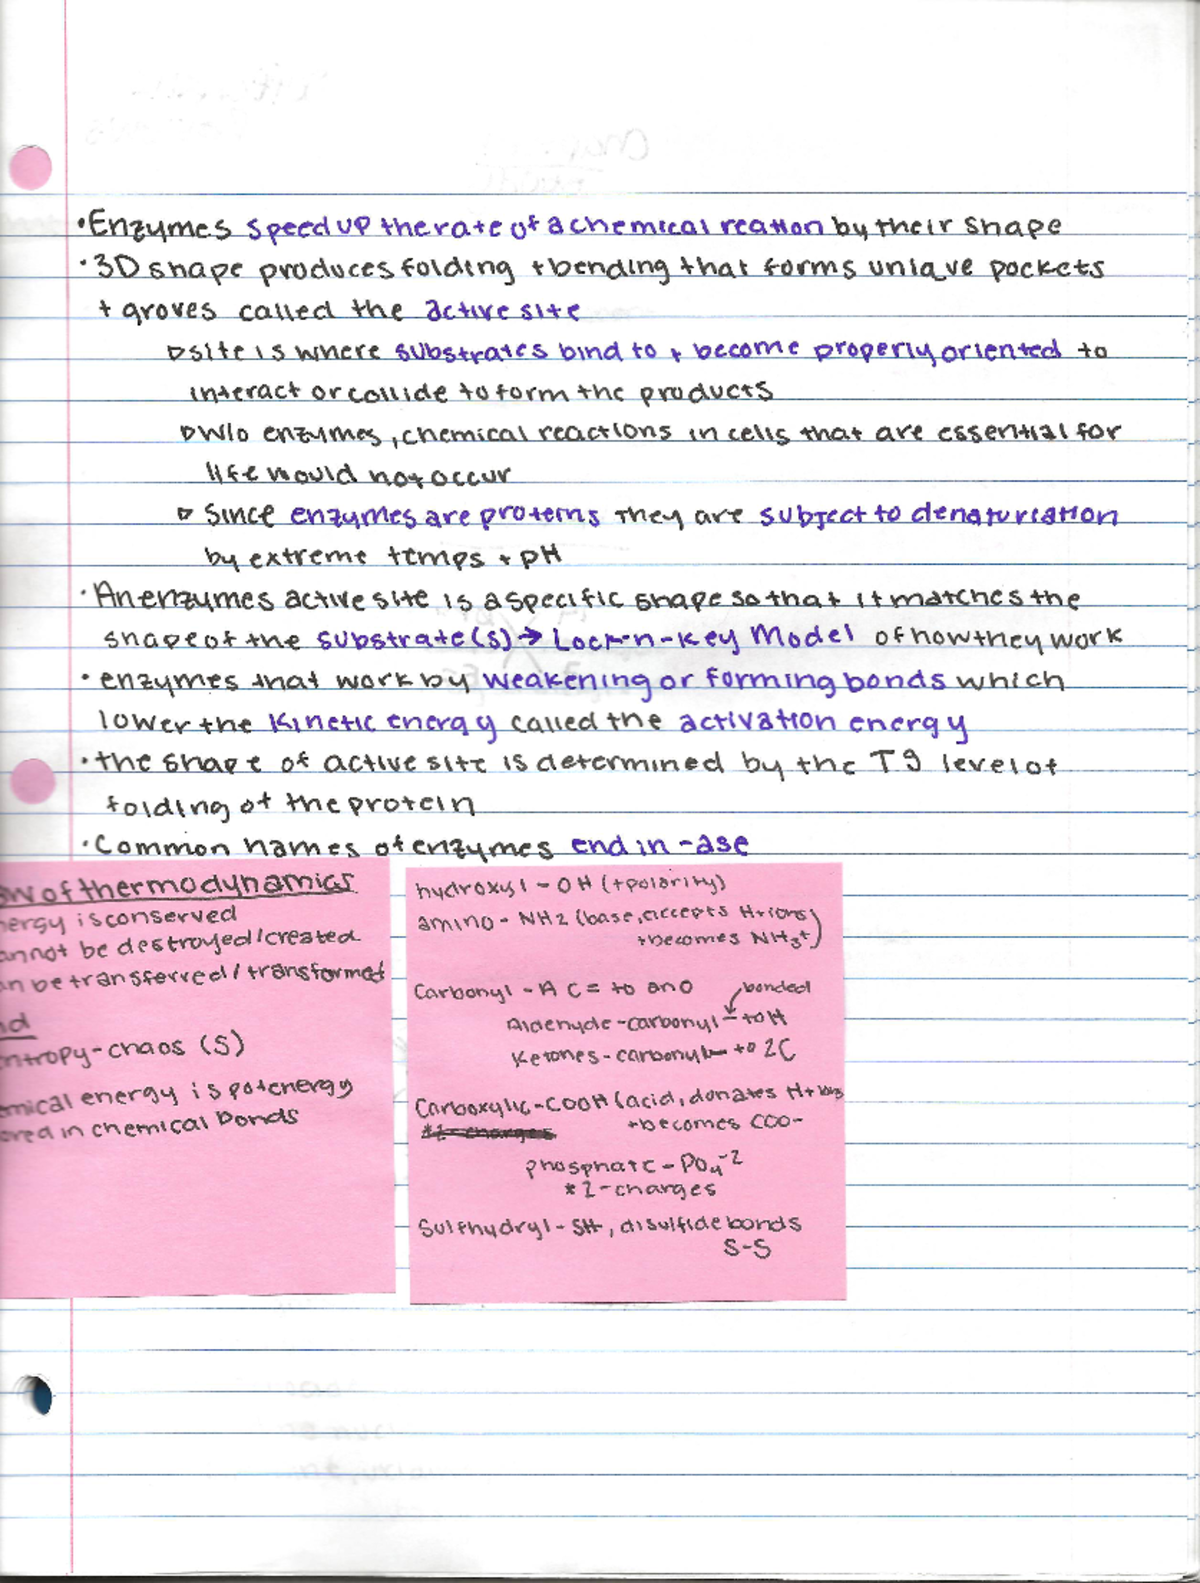 •Enzymes speed up the rate of a chemical reation by their shape
•3D shape produces folding + bending that forms unique pockets
+ groves called the active site
▷site is where substrates bind to + become properly oriented to
interact or collide to form the products
▷W/o enzymes, chemical reactions in cells that are essential for
life would not occur
▷ Since enzymes are proteins They are subject to denaturation
by extreme temps + pH
•An enzymes active site is a specific shape so that it matches the
shape of the substrate(s)→ Lock-n-Key Model of how they work
• enzymes that work by weakening or forming bonds which
lower the kinetic energy called the activation energy
•the shape of active site is determined by the level of
folding of the protein
•Common names of enzymes end in -ase
of thermodynamics
is conserved
be destroyed/created
be transferred/transformed
-chaos (S)
energy is pot energy
in chemical bonds
hydroxyl - OH (+polarity)
amino - NH2 (base, accepts H+ ions)
+becomes NH3+)
Carbonyl - A C = to an O
bonded
Aldehyde-carbonyl to H
Ketones-carbonyl to 2C
Carboxylic-COOH (acid, donates H+
+becomes COO-
phosphate - PO4-2
*2-charges
Sulfhydryl - SH, disulfide bonds
S-S